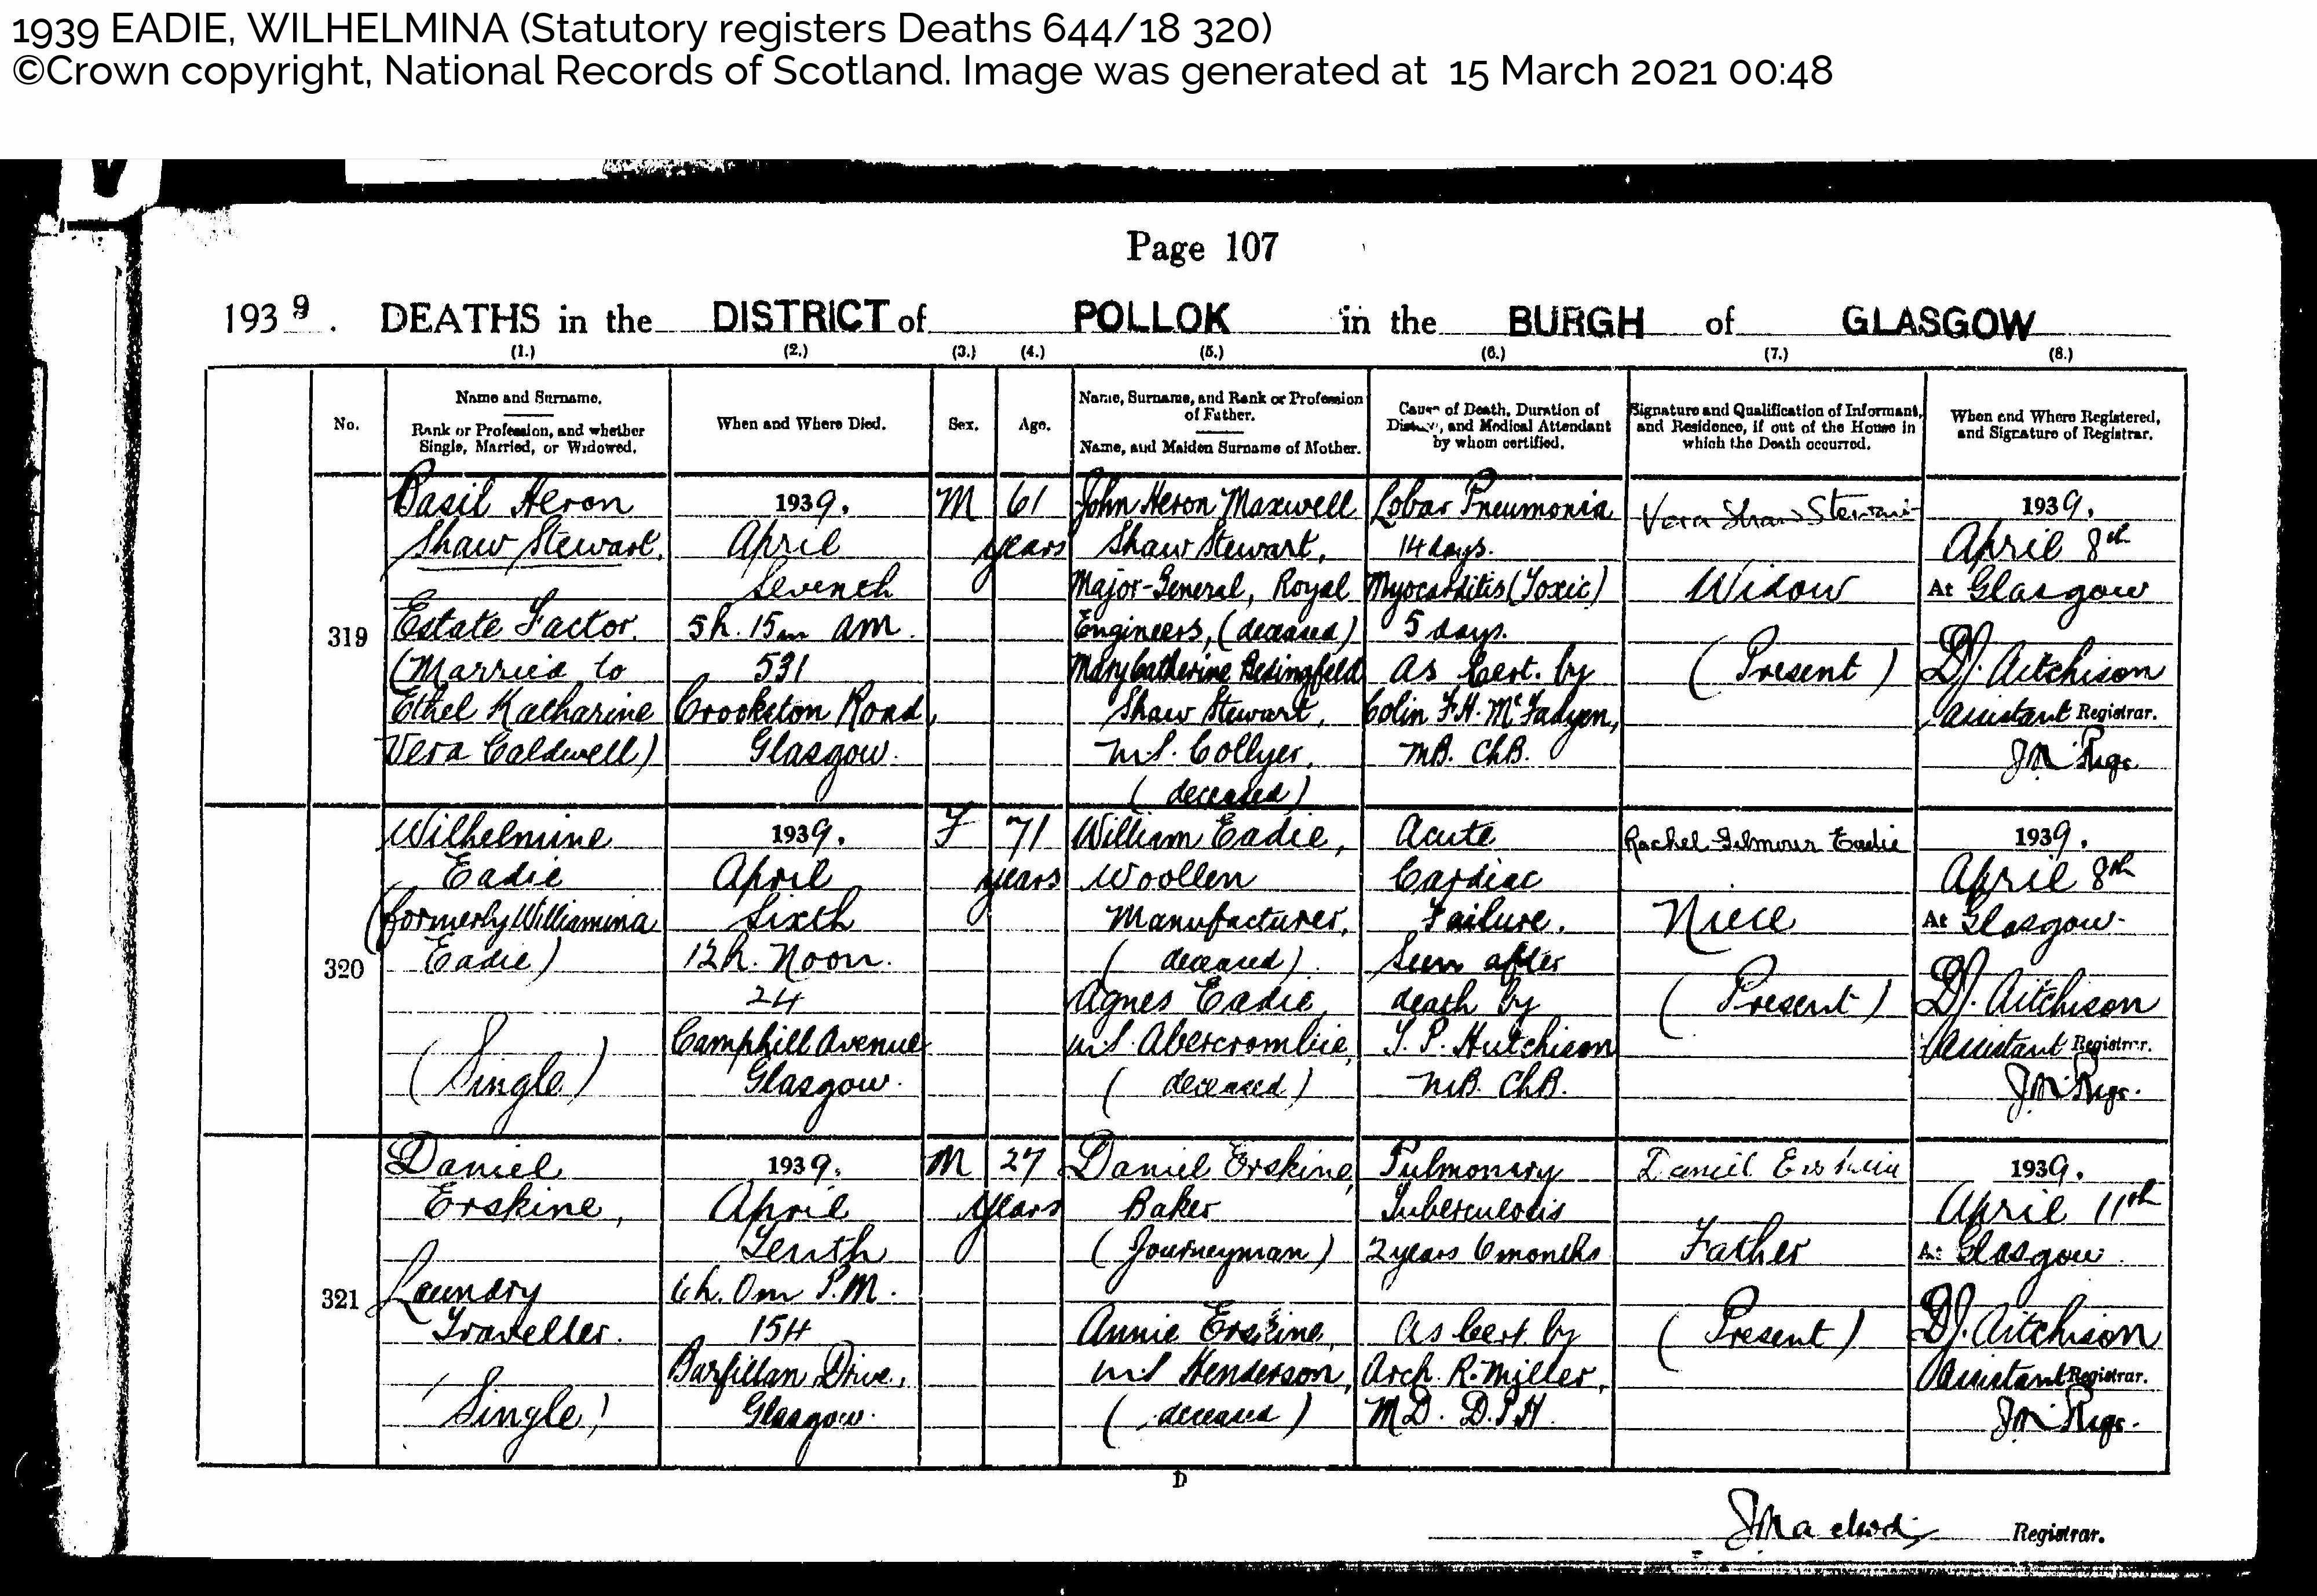 1939 EADIE, WILHELMINA (Statutory registers Deaths 644/18 320)
©Crown copyright, National Records of Scotland. Image was generated at 15 March 2021 00:48
Page 107
1939. DEATHS in the DISTRICT of POLLOK in the BURGH of GLASGOW
(1.) (2.) (3.) (4.) (5.) (6.) (7.) (8.)
No.
Name and Surname.
Rank or Profession, and whether
Single, Married, or Widowed.
When and Where Died.
Sex.
Age.
Name, Surname, and Rank or Profession
of Father.
Name, and Maiden Surname of Mother.
Cause of Death, Duration of
Disease, and Medical Attendant
by whom certified.
Signature and Qualification of Informant,
and Residence, if out of the House in
which the Death occurred.
When and Where Registered,
and Signature of Registrar.
319
Basil Heron
Shaw Stewart.
Estate Factor.
(Married to
Ethel Katharine
Vera Caldwell)
1939.
April
Seventh
5h. 15m am.
531
Crookston Road,
Glasgow.
M
61
years
John Heron Maxwell
Shaw Stewart,
Major-General, Royal
Engineers, (deceased)
Mary Catherine Bedingfeld
Shaw Stewart,
m.s. Collyer.
(deceased)
Lobar Pneumonia
14 days.
Myocarditis (Toxic)
5 days.
As Cert. by
Colin F.H. McFadyen,
MB. ChB.
Vera Shaw Stewart
Widow
(Present)
1939.
April 8th
At Glasgow
D.J. Aitchison
Assistant Registrar.
320
Wilhelmine
Eadie
(formerly Williamina
Eadie)
(Single)
1939.
April
Sixth
12h. Noon.
24
Camphill Avenue
Glasgow.
F
71
years
William Eadie,
Woollen
Manufacturer,
(deceased).
Agnes Eadie,
m.s. Abercrombie,
(deceased)
Acute
Cardiac
Failure.
Seen after
death by
T. P. Hutchison
MB. ChB.
Rachel Gilmour Eadie
Niece
(Present)
1939.
April 8th
At Glasgow
D.J. Aitchison
Assistant Registrar.
321
Daniel
Erskine,
Laundry
Traveller.
(Single)
1939.
April
Tenth
6h. 0m P.M.
154
Barfillan Drive,
Glasgow.
M
27
years
Daniel Erskine,
Baker
(Journeyman)
Annie Erskine,
m.s Henderson,
(deceased)
Pulmonary
Tuberculosis
2 years 6 months
As Cert. by
Arch. R. Miller,
MD. D.P.H.
Daniel Erskine
Father
(Present)
1939.
April 11th
At Glasgow
D.J. Aitchison
Assistant Registrar.
D
Registrar.